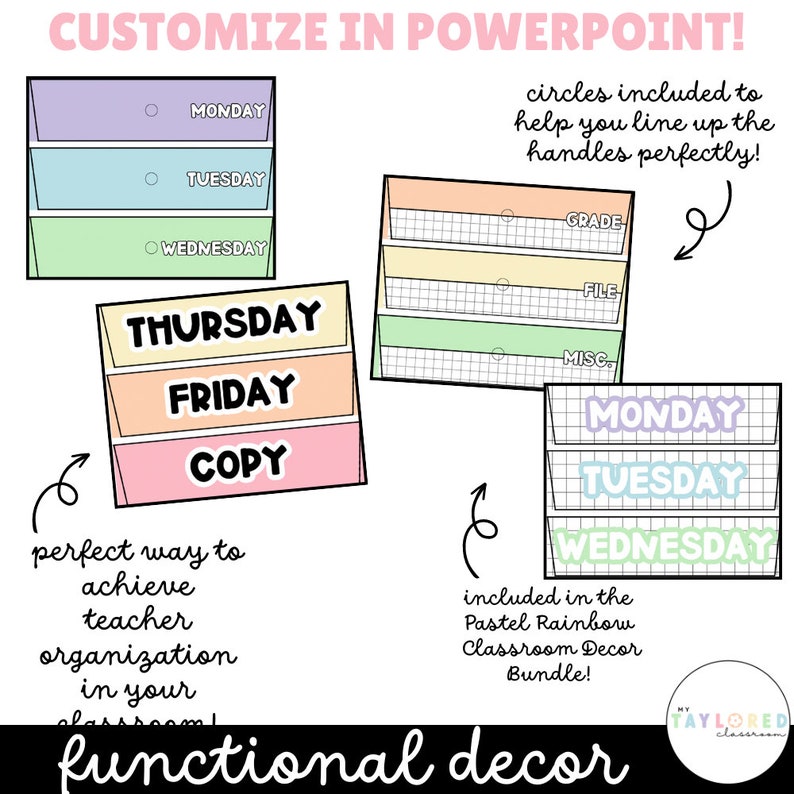 CUSTOMIZE IN POWERPOINT!
MONDAY
TUESDAY
WEDNESDAY
circles included to
help you line up the
handles perfectly!
GRADE
FILE
MISC.
THURSDAY
FRIDAY
COPY
MONDAY
TUESDAY
WEDNESDAY
perfect way to
achieve
teacher
organization
in your
classroom!
included in the
Pastel Rainbow
Classroom Decor
Bundle!
MY
TAYLORED
classroom
functional decor